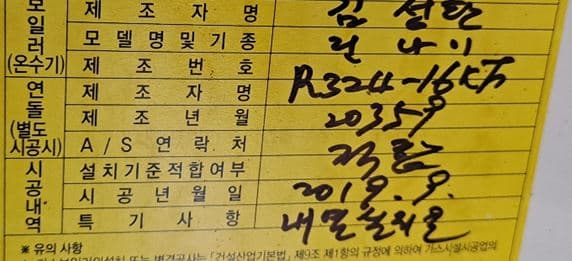 보일러(온수기)
제조자명
모델명및기종 린나이
제조번호 R324-16KF
연돌(별도시공시)
제조자명
제조년월 20359
A/S연락처
시공내역
설치기준적합여부 적합
시공년월일 2019.9.
특기사항
※ 유의 사항
「건설산업기본법」 제9조 제1항의 규정에 의하여 가스시설시공업의